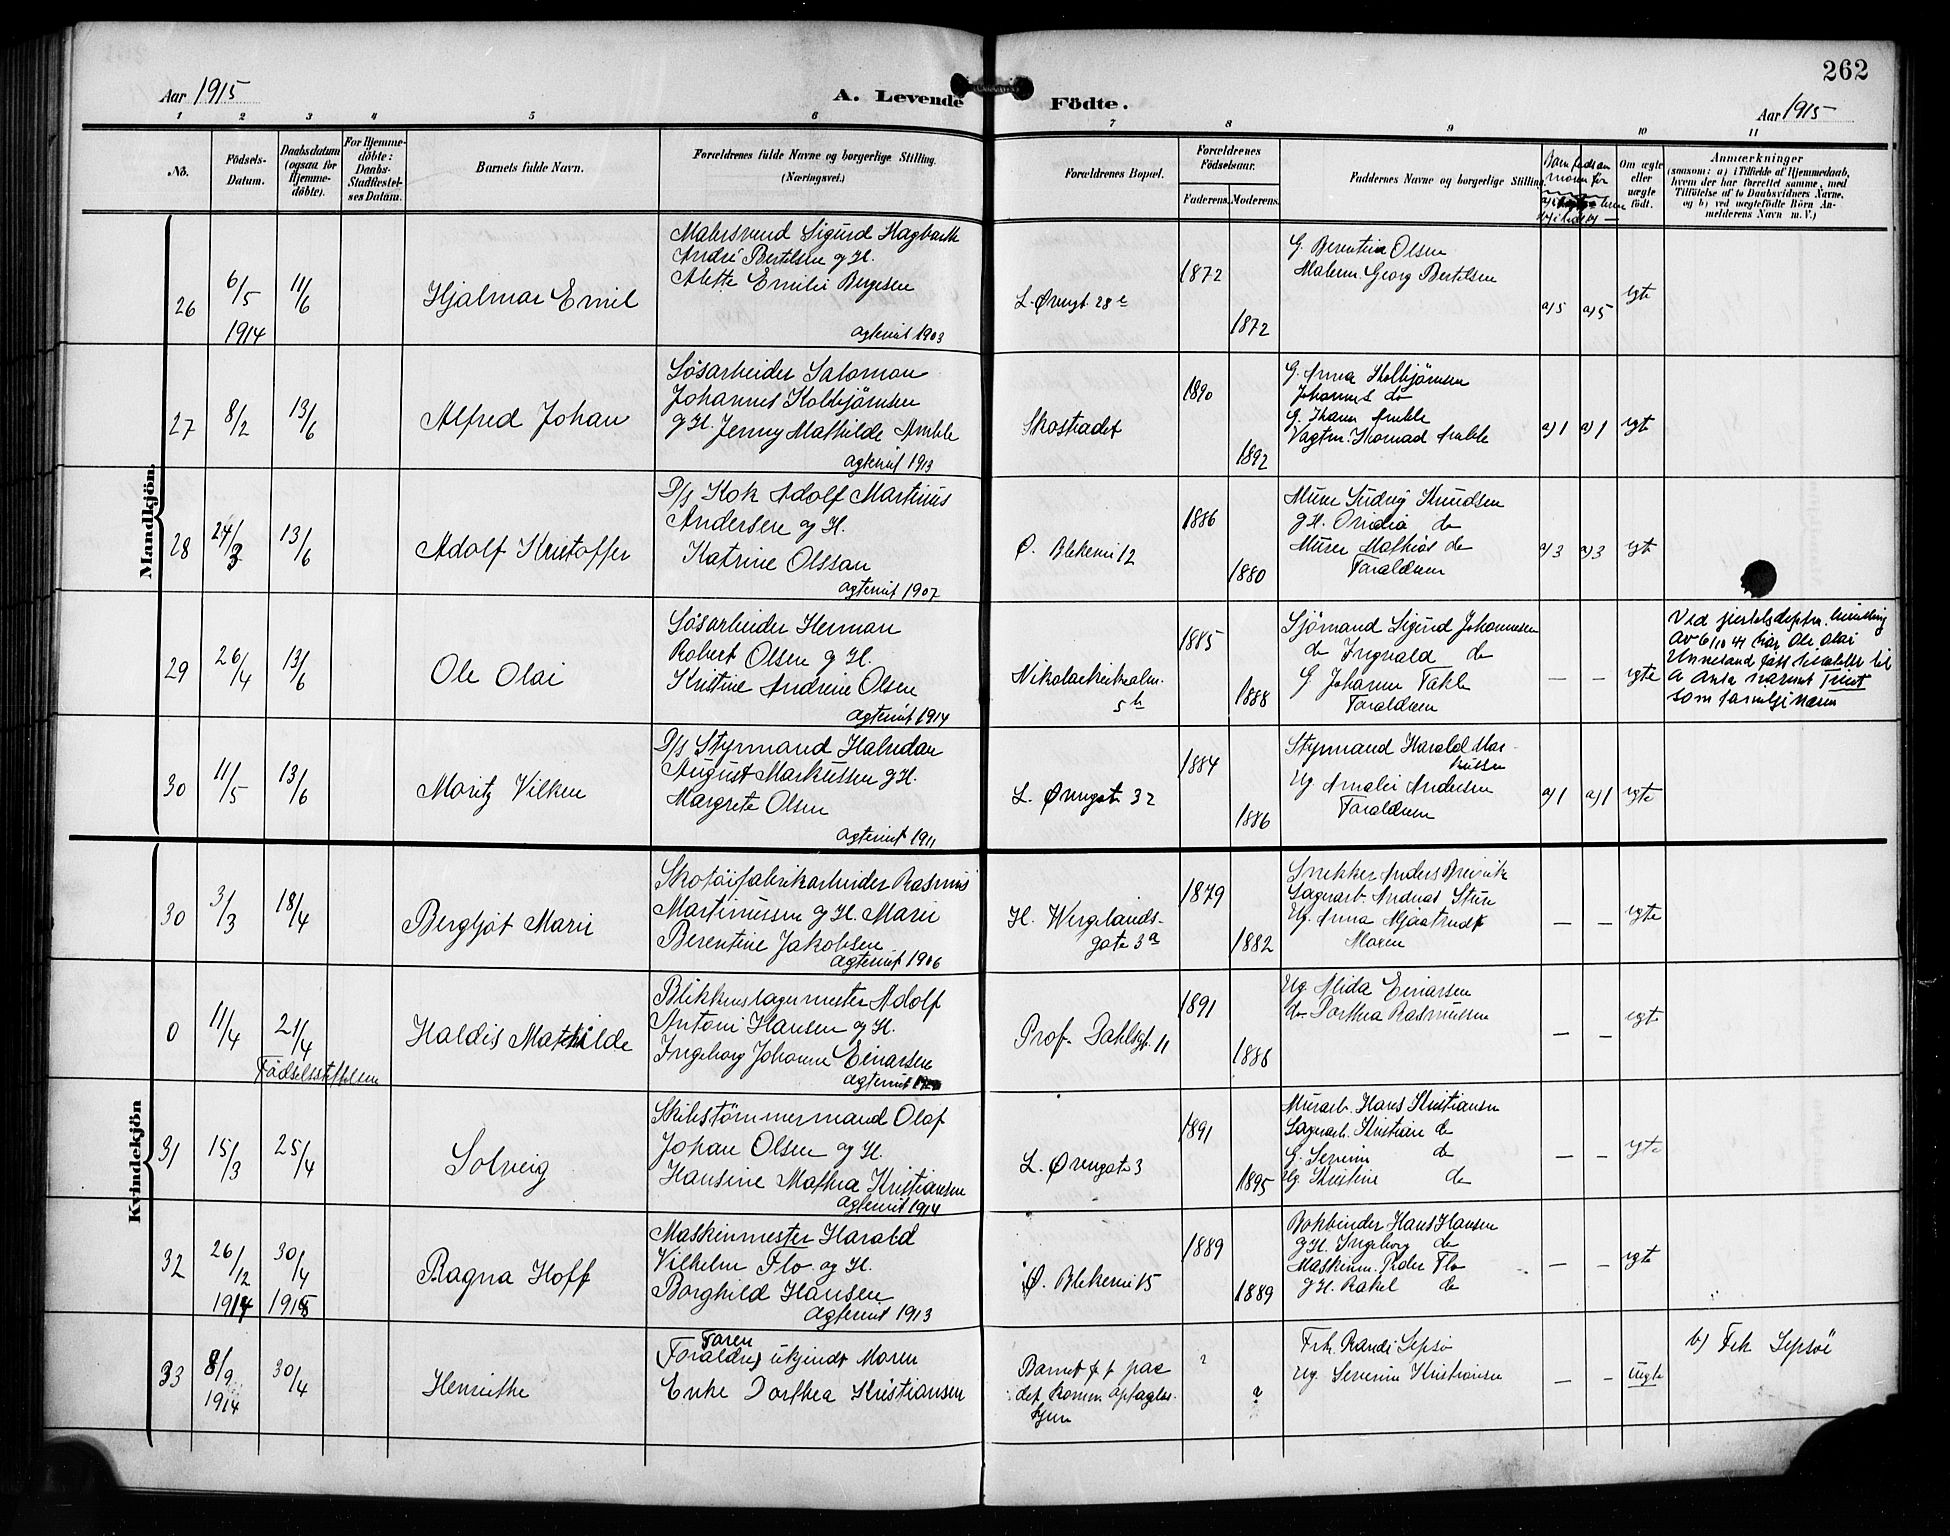 262
Aar 1915
A. Levende Födte.
Aar 1915
1 2 3 4 5 6 7 8 9 10 11
No.
Födsels-
Datum.
Daabsdatum
(ogsaa for
Hjemme-
döbte).
For Hjemme-
döbte:
Daabs-
Stadfæstel-
ses Datum.
Barnets fulde Navn.
Forældrenes fulde Navne og borgerlige Stilling.
(Næringsvei.)
Forældrenes Bopæl.
Forældrenes
Födselsaar.
Faderens. Moderens.
Faddernes Navne og borgerlige Stilling.
Om ægte
eller
uægte
födt.
Anmærkninger
(saasom: a) i Tilfælde af Hjemmedaab,
hvem der har forrettet samme, med
Tilföielse af to Daabsvidners Navne,
og b) ved uægtefödte Börn An-
melderens Navn m. V.)
Mandkjön.
26
6/5
1914
11/6
Hjalmar Emil
Malersvend Sigurd Hagbarth
André Bertelsen g H.
Alette Emilie Bergesen
ægteviet 1903
L. Øvregt. 28
1872
1872
G. Berentine Olsen
Malerm. Georg Bertelsen
a) 5 a) 5
egte
27
8/2
13/6
Alfred Johan
Løsarbeider Salomon
Johannes Kolbjørnsen
g H. Jenny Mathilde Amble
ægteviet 1913
Skostrædet
1890
1892
G. Anna Kolbjørnsen
Johannes do
Vagtm. Konrad Amble
a) 1 a) 1
egte
28
24/3
13/6
Adolf Kristoffer
D/s Kok Adolf Martinus
Andersen og H.
Katrine Olssan
ægteviet 1907
Ø. Blekevei 12
1886
1880
Murer Ludvig Knudsen
g H. do
Murer Mathias do
Forældren
a) 3 a) 3
egte
29
26/4
13/6
Ole Olai
Løsarbeider Herman
Robert Olsen g H.
Kristine Andrine Olsen
ægteviet 1914
Nikolaikirkealm.
5 b
1885
1888
Sjømand Sigurd Johannesen
do Ingvald do
G Johanne Takle
Forældren
— —
egte
Ved
av 6/10 41 har Ole Olai
Unneland fått tilladelse til
å anta navnet
som familjenavn
30
11/5
13/6
Moritz Vilken
D/s Styrmand Halvdan
August Markussen g H.
Margrete Olsen
ægteviet 1911
L. Øvregate 32
1884
1886
Styrmand Harald Mar-
kussen
Ug. Amalie Andersen
Forældren
a) 1 a) 1
egte
Kvindekjön
30
3/3
18/4
Bergljot Marie
Skotøifabrikarbeider Rasmus
Martinussen og H. Marie
Berentine Jakobsen
ægteviet 1906
H. Wergelands-
gate 3a
1879
1882
Snekker Anders Breivik
Sagarb. Andreas Sture
Ug. Anna
Moren
— —
egte
0
11/4
21/4
Fødselsstiftelsen
Haldis Mathilde
Blikkenslagermester Adolf
Antoni Hansen og H.
Ingeborg Johanne Einarsen
ægteviet
Prof. Dahlsgt. 11
1891
1888
Ug. Alida Einarsen
do Dorthea Rasmussen
— —
egte
31
15/3
25/4
Solveig
Skibstømmermand Olaf
Johan Olsen og H.
Hansine Mathea Kristiansen
ægteviet 1914
L. Øvregate 3
1891
1895
Murarb. Hans Kristiansen
Sagarb. Kristian do
G. Severine do
Ug. Kristine do
— —
egte
32
26/12
1914
30/4
1915
Ragna Hoff
Maskinmester Harald
Vilhelm Flo og H.
Borghild Hansen
ægteviet 1913
Ø. Blekevei 15
1889
1889
Bokbinder Hans Hansen
g H. Ingeborg do
Maskinm. Peder Flo
g H. Rakel do
— —
egte
33
8/9
1914
30/4
Henriethe
Faren
(Forældre) ukjendt Moren
Enke Dorthea Kristiansen
Barnet f. t. paa
det komm. optagels-
hjem
?
?
Frk. Randi Lepsø
Ug. Severine Kristiansen
— —
uegte
b) Frk Lepsøe